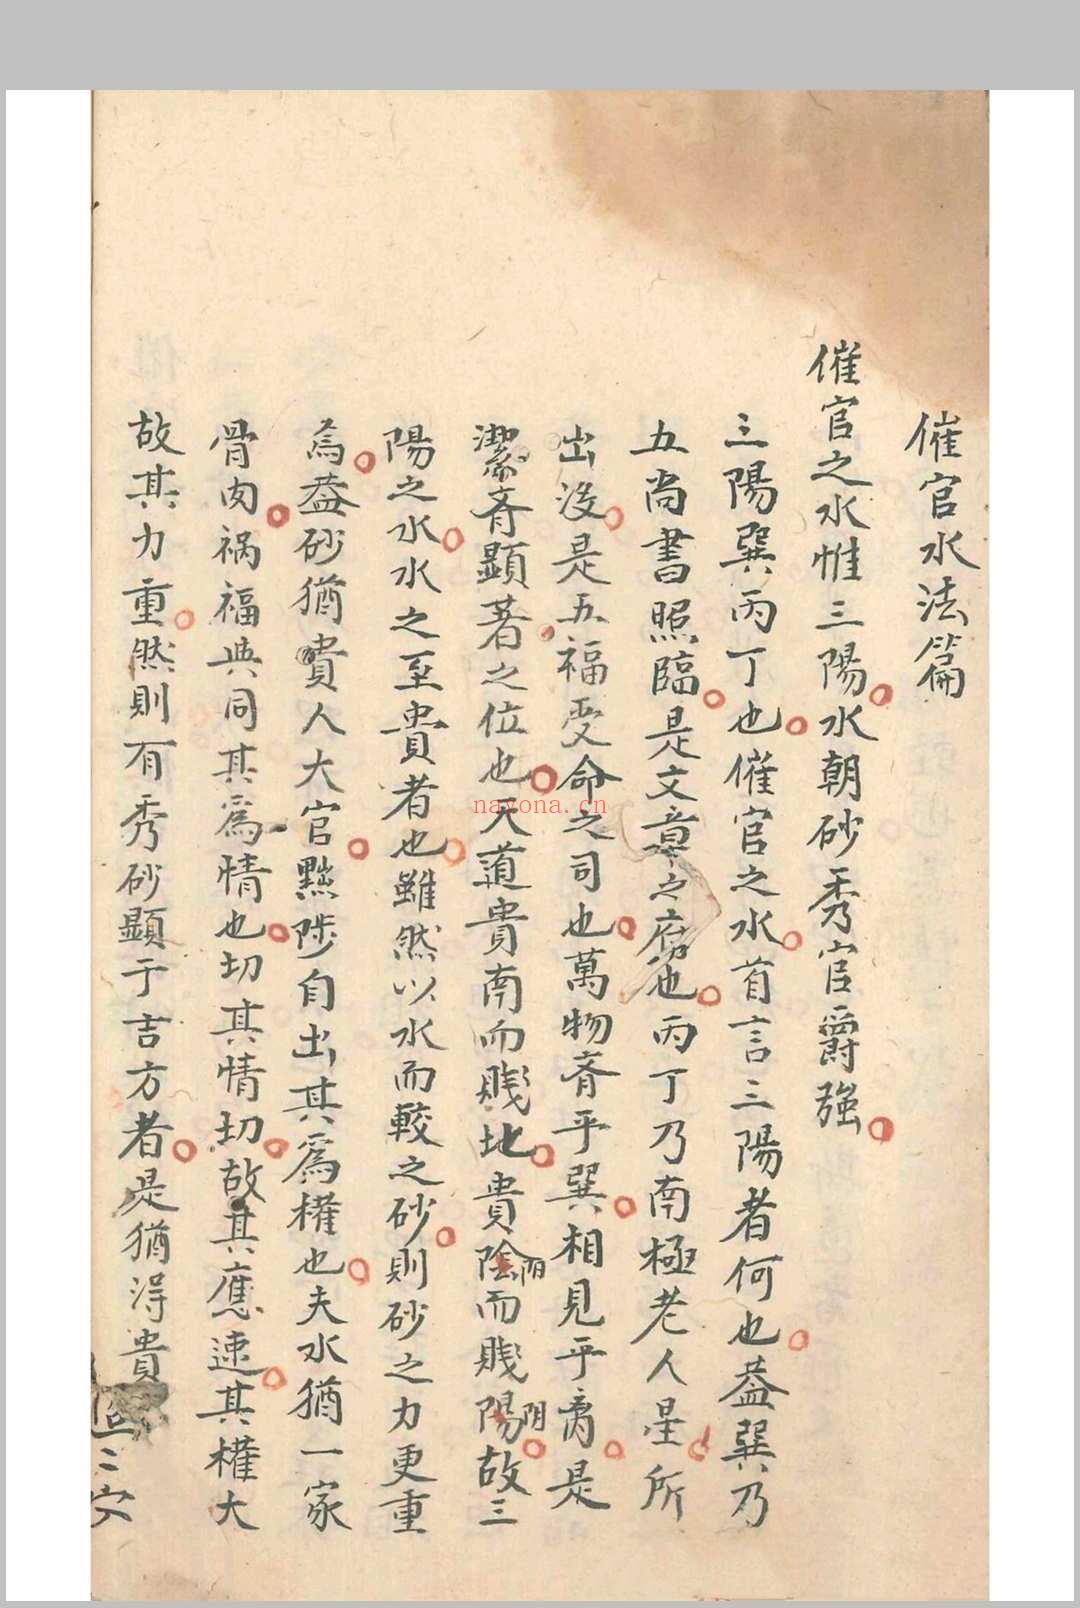 催官水法篇
催官之水惟三陽水朝砂秀官爵強
三陽巽丙丁也催官之水首言三陽者何也蓋巽乃
五尚書照臨是文章之府也丙丁乃南極老人星所
出沒是五福受命之司也萬物齊乎巽相見乎离是
潔齊顯著之位也天道貴南而賤地貴陰阴而賤陽阴故三
陽之水水之至貴者也雖然以水而較之砂則砂之力更重
為蓋砂猶貴人大官黜陟自出其爲權也夫水猶一家
骨肉禍福與同其爲情也切其情切故其應速其權大
故其力重然則有秀砂顯于吉方者是猶淂貴
nayona.cn